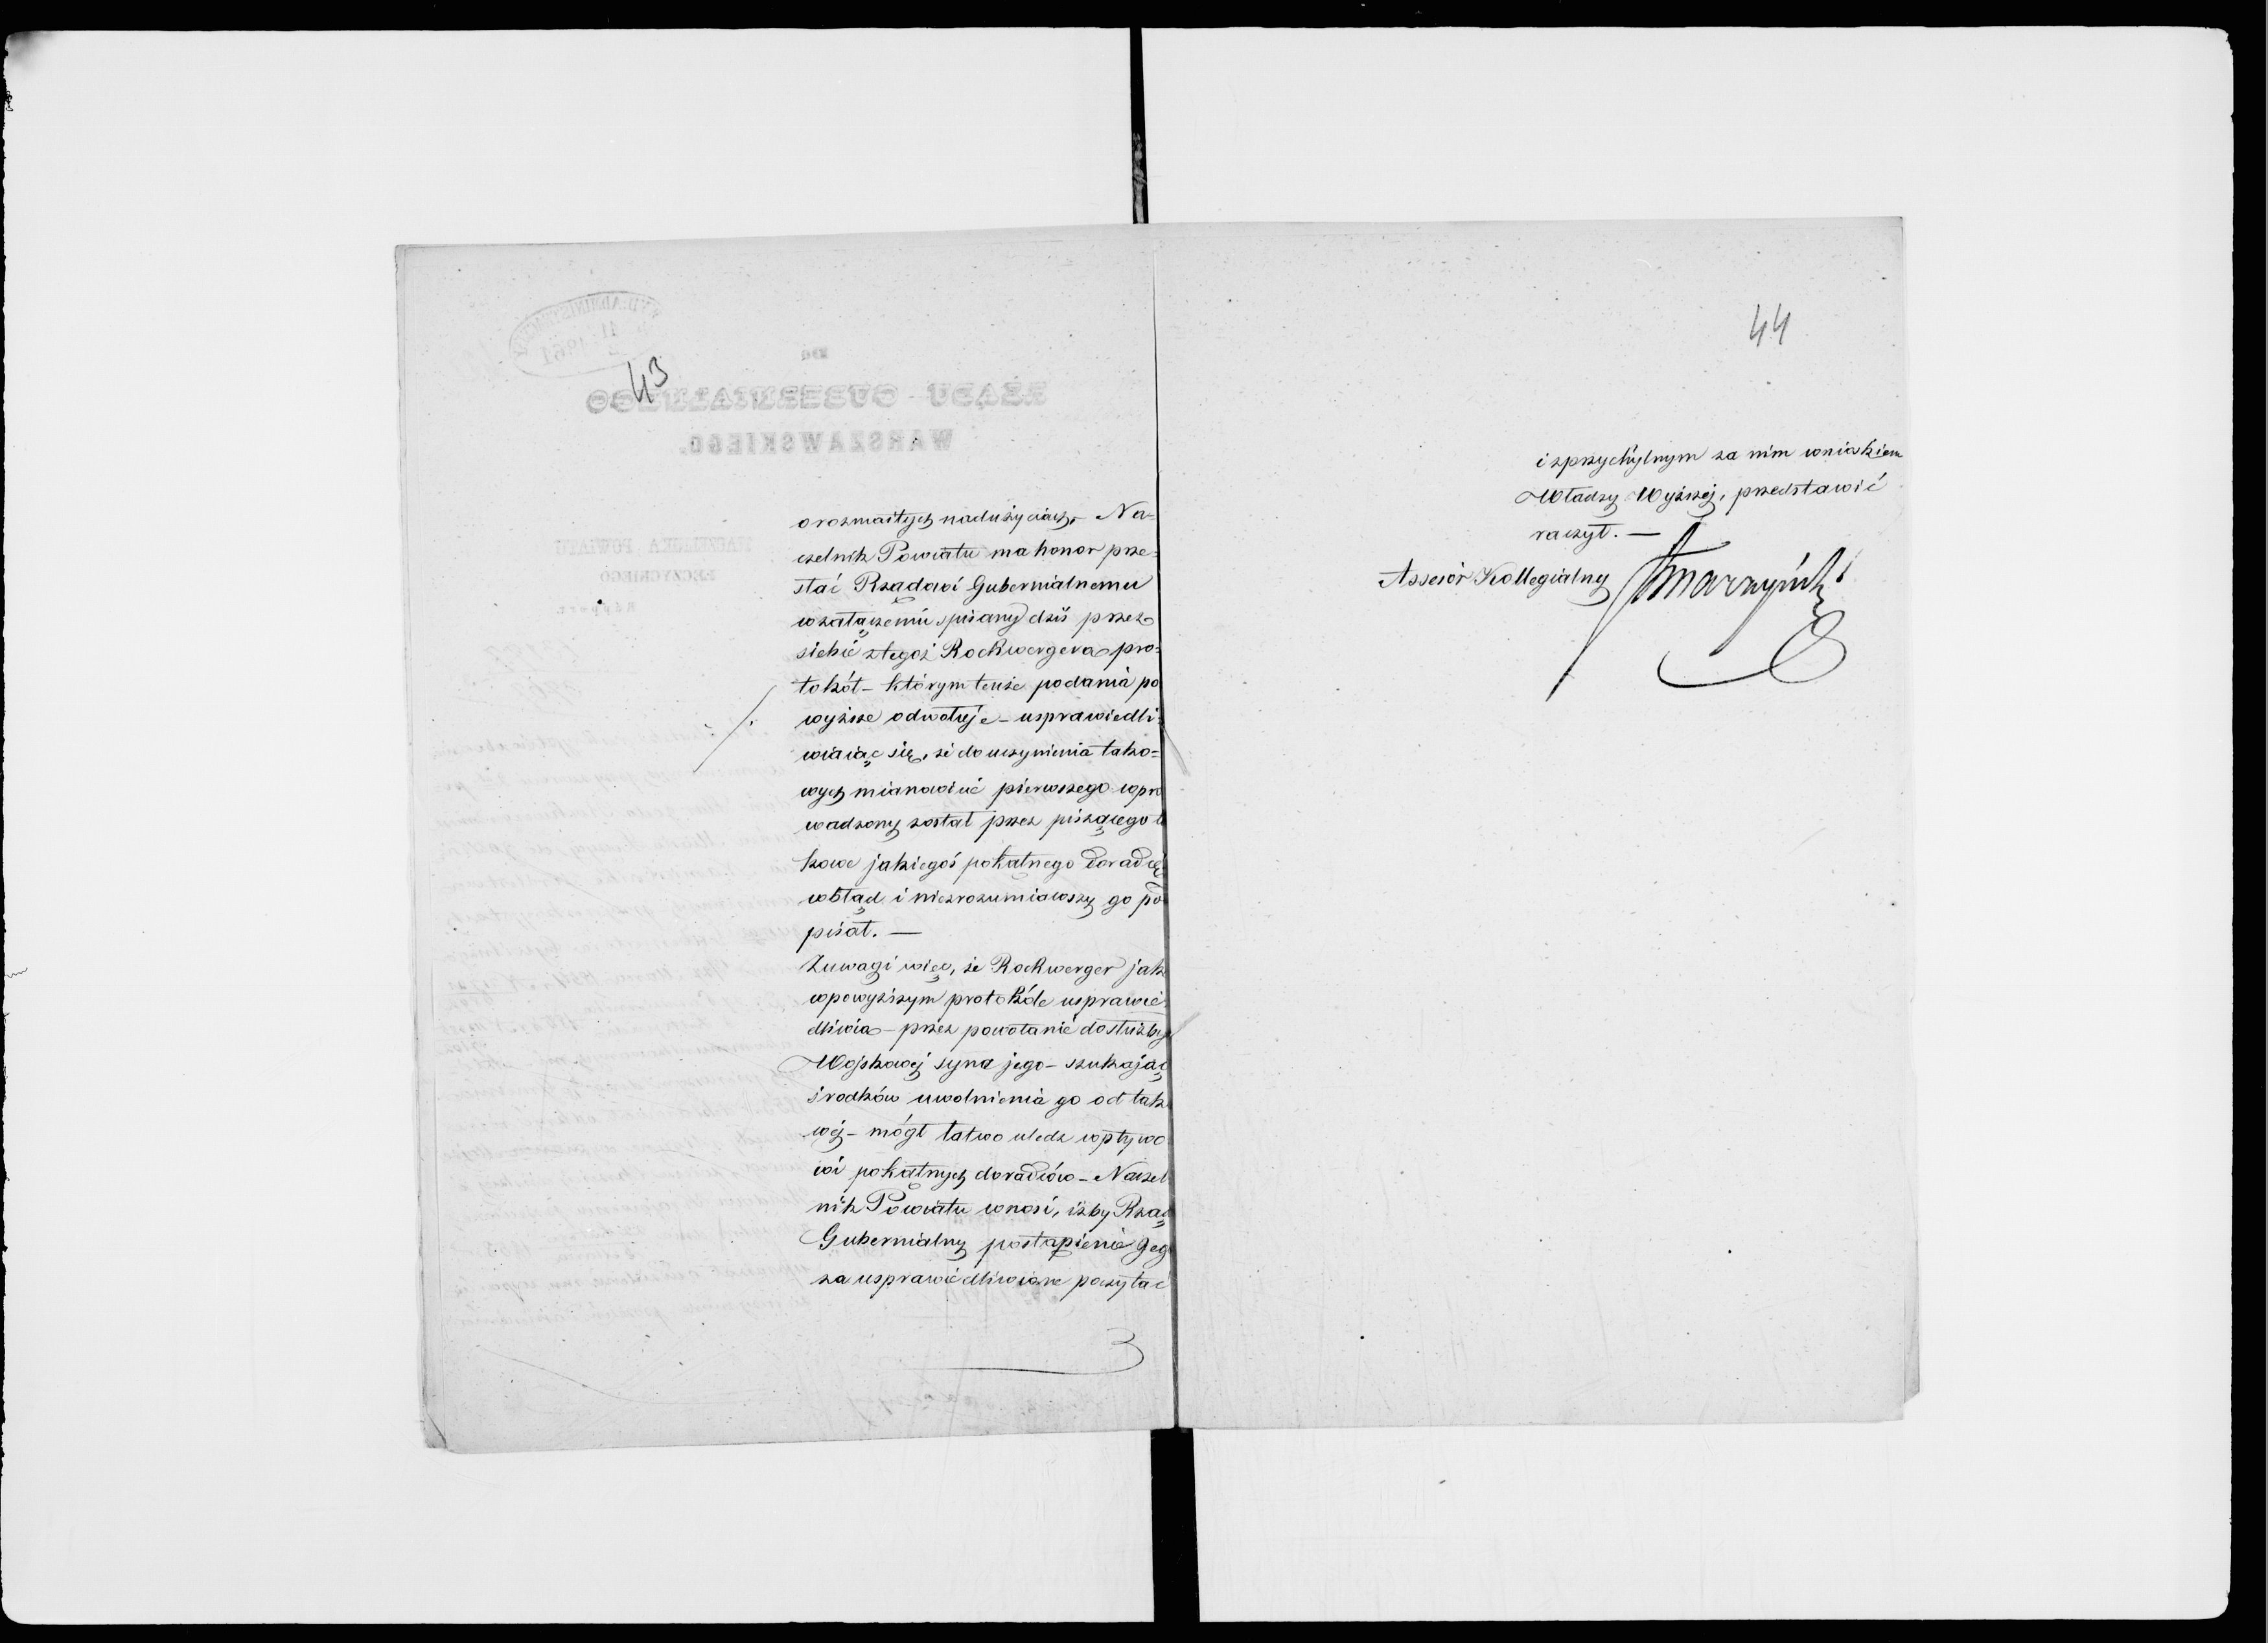 43
o rozmaitych nadużyciach, Na-
czelnik Powiatu ma honor prze-
słać Rządowi Gubernialnemu
wzałączeniu spisany dziś przez
siebie ztegoż Rockwergera pro-
tokół – którym tenże podania po
wyższe odwołuje – usprawiedli-
wiaiąc się, że do uczynienia tako=
wych mianowicie pierwszego wpro
wadzony został przez piszącego ta
kowe jakiegoś pokątnego doradcę
wbłąd i niezrozumiawszy go pod
pisał. —
Zuwagi więc, że Rockwerger jak
wpowyższym protokóle usprawie
dliwia – przez powołanie do służby
Wojskowej syna jego – szukając
środków uwolnienia go od tako
wej – mógł łatwo uledz wpływo
wi pokątnych doradców – Naczel
nik Powiatu wnosi, iżby Rząd
Gubernialny postąpienie Jego
za usprawiedliwione poczytać
44
i zprzychylnym za nim wnioskiem
Władzy Wyższej, przedstawić
raczył. —
Assesor Kollegialny